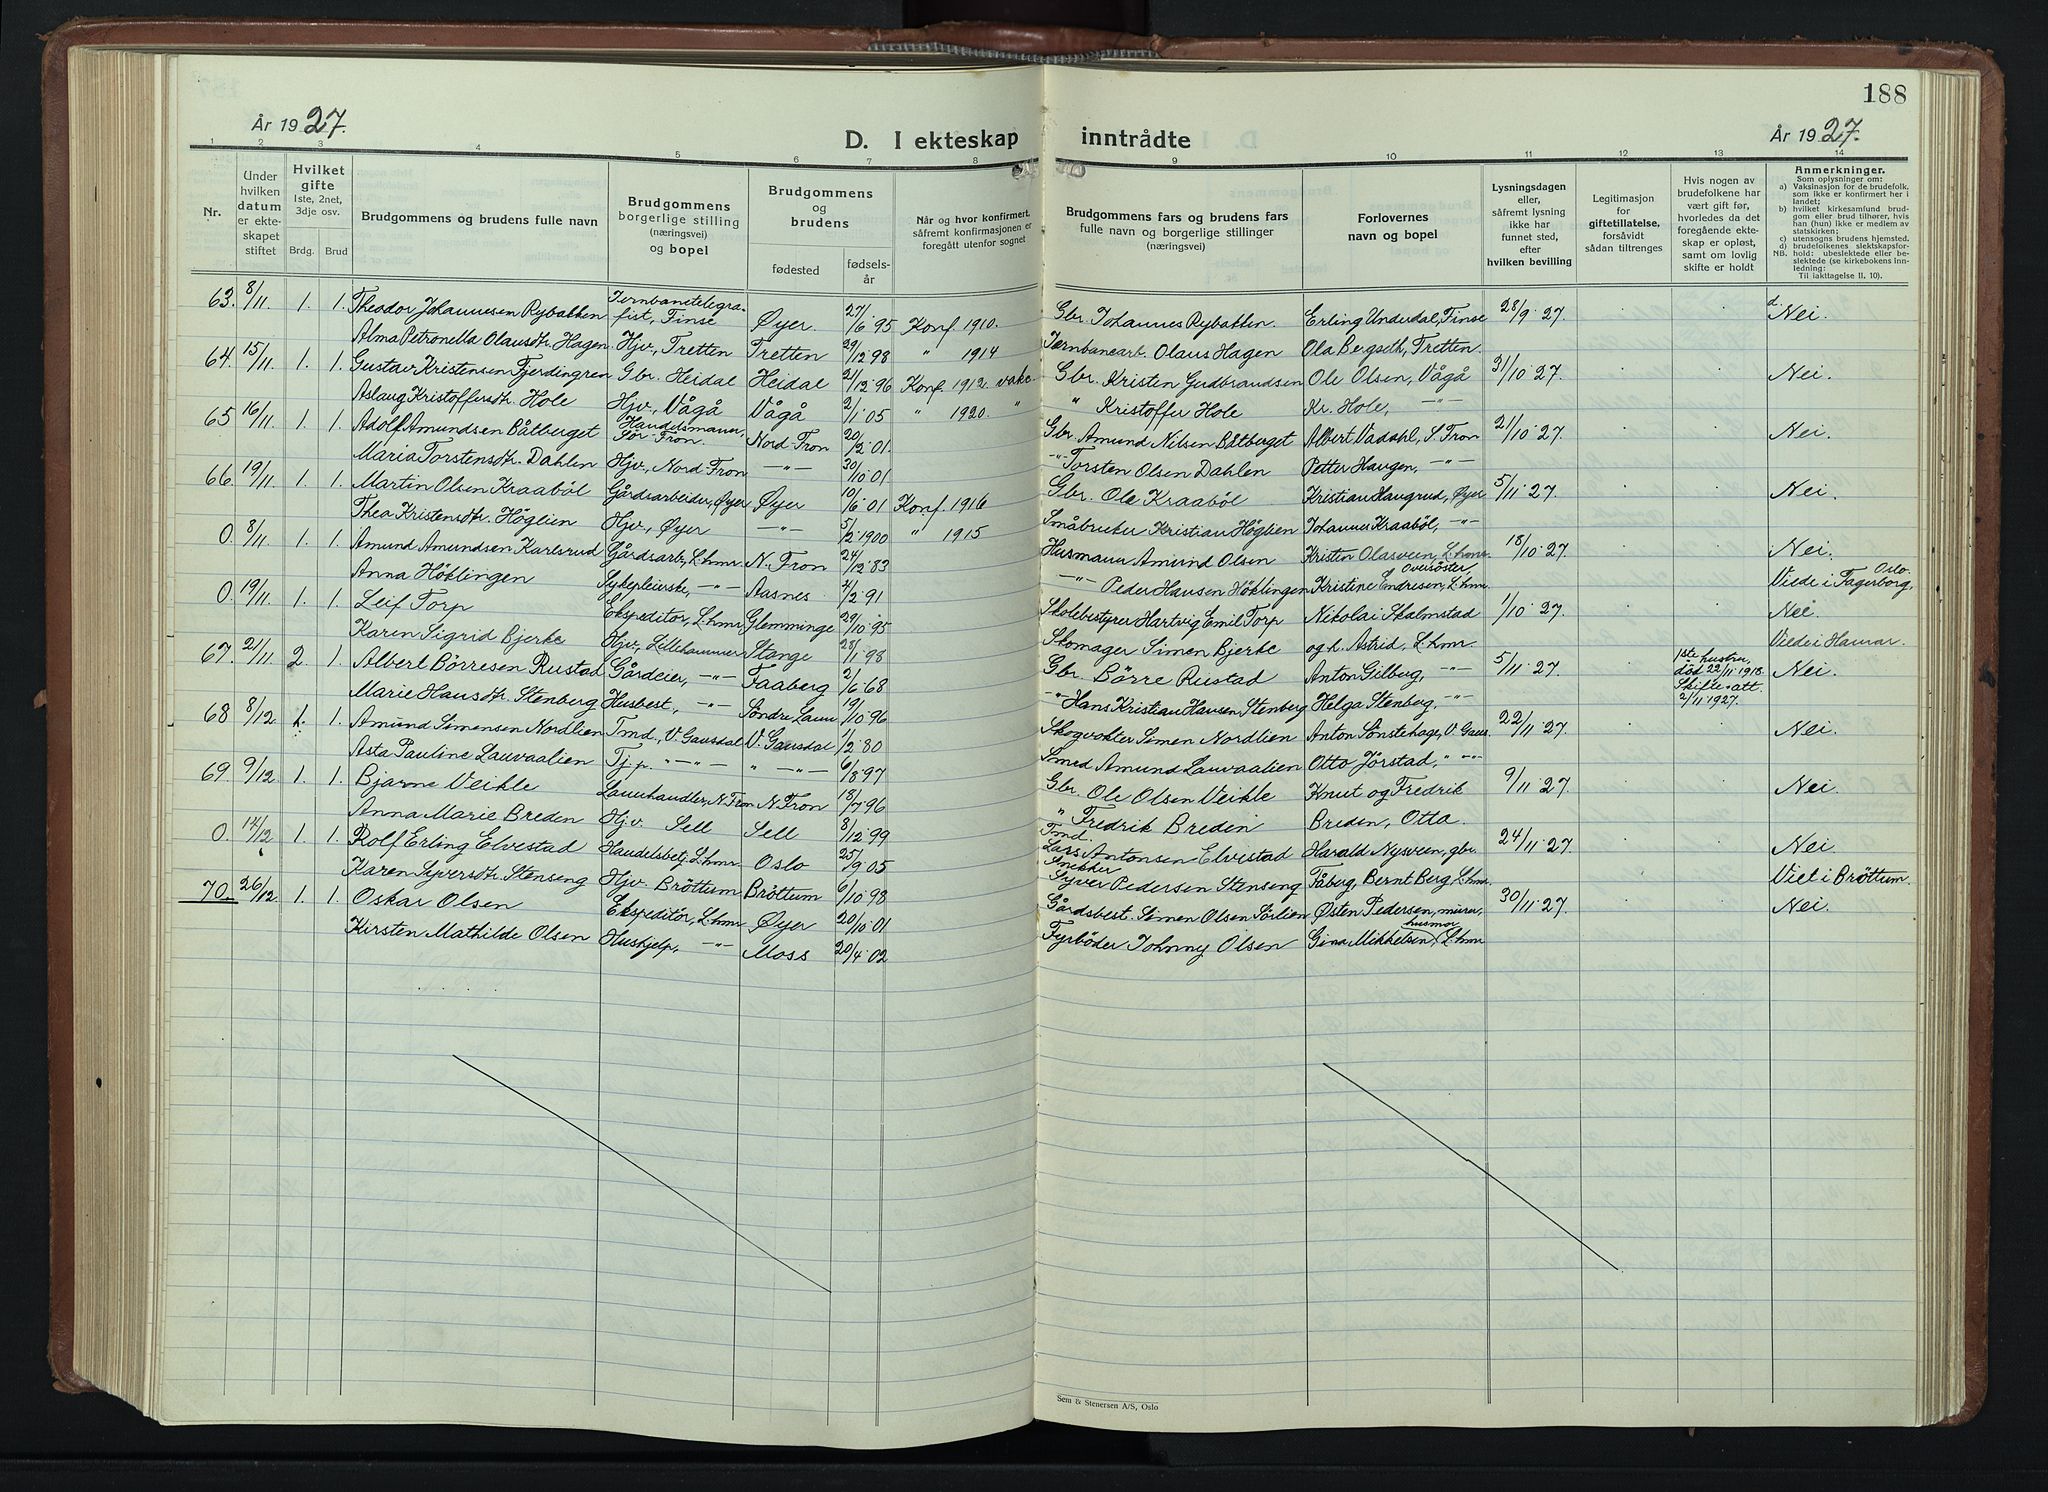 188
År 1927.
D. I ekteskap inntrådte
År 1927.
1 2 3 4 5 6 7 8 9 10 11 12 13 14
Nr.
Under hvilken datum er ekteskapet stiftet
Hvilket gifte 1ste, 2net, 3dje osv.
Brdg. Brud
Brudgommens og brudens fulle navn
Brudgommens borgerlige stilling (næringsvei) og bopel
Brudgommens og brudens
fødested
fødselsår
Når og hvor konfirmert, såfremt konfirmasjonen er foregått utenfor sognet
Brudgommens fars og brudens fars fulle navn og borgerlige stillinger (næringsvei)
Forlovernes navn og bopel
Lysningsdagen eller, såfremt lysning ikke har funnet sted, efter hvilken bevilling
Legitimasjon for giftetillatelse, forsåvidt sådan tiltrenges
Hvis nogen av brudefolkene har vært gift før, hvorledes da det foregående ekteskap er opløst, samt om lovlig skifte er holdt
Anmerkninger.
Som oplysninger om:
a) Vaksinasjon for de brudefolk, som ikke er konfirmert her i landet;
b) hvilket kirkesamfund brudgom eller brud tilhører, hvis han (hun) ikke er medlem av statskirken;
c) utensogns brudens hjemsted,
d) brudefolkenes slektskapsforhold: ubeslektede eller beslektede (se kirkebokens innledning:
NB. Til iakttagelse II, 10).
63. 8/11 1. 1. Theodor Johannesen Rybakken Jernbanetelegrafist, Finse Øyer. 27/6 95 Konf. 1910. Gbr. Johannes Rybakken. Erling Underdal, Finse 28/9 27. d. Nei.
Alma Petronella Olausdtr. Hagen Hjv., Tretten Tretten 29/12 98 " 1914 Jernbanearb. Olaus Hagen Ola Bergseth, Tretten.
64. 15/11. 1. 1. Gustav Kristensen Fjerdingren Gbr. Heidal Heidal 21/12 96 Konf. 1912. Gbr. Kristen Gudbrandsen Ole Olsen, Vågå 31/10 27. Nei.
Aslaug Kristoffersdtr. Hole Hjv., Vågå Vågå 2/1 05 " 1920. " " Kristoffer Hole Kr. Hole, —"—
65 16/11 1. 1 Adolf Amundsen Båtberget Handelsmann, Sør-Fron. Nord-Fron 20/2 01. Gbr. Amund Nilsen Båtberget Albert Vadahl, S. Fron 21/10 27. Nei.
Maria Torstensdtr. Dahlen Hjv., Nord Fron —"— 30/10 01 —"— Torsten Olsen Dahlen Petter Haugen, —"—
66. 19/11 1. 1 Martin Olsen Kraaböl Gårdsarbeider, Øyer Øyer 10/6 01 Konf. 1916 Gbr. Ole Kraaböl Kristian Haugrud, Øyer 5/11 27. Nei.
Thea Kristensdtr. Höglien Hjv., Øyer —"— 5/2 1900 " 1915 Småbruker Kristian Höglien Johannes Kraaböl, —"—
0. 8/11. 1. 1 Amund Amundsen Karlsrud Gårdsarb., L.hmr. N. Fron 24/12 83 Husmann Amund Olsen Kristen Olasveen, L.hmr. 18/10 27. Nei.
Anna Höklingen Sykepleierske, —"— Aasnes 4/2 91 —"— Peder Hansen Höklingen Kristine Endresen, Oversöster L.hmr. Viede i Fagerborg, Oslo.
0. 19/11. 1. 1. Leif Torp Ekspeditör, L.hmr. Glemminge 29/10 95 Skolebestyrer Hartvig Emil Torp Nikolai Skalmstad 1/10 27. Nei
Karen Sigrid Bjerke Hjv., Lillehammer Stange 28/1 98 Skomager Simen Bjerke og h. Astrid, L.hmr. Viede i Hamar.
67. 21/11 2. 1. Albert Börresen Rustad Gårdeier, —"— Faaberg 2/6 68 Gbr. Börre Rustad Anton Gilberg, —"— 5/11 27. 1ste hustru, död 22/11 1918. Skifte-att. 2/11 1927. Nei.
Marie Hansdtr. Stenberg Husbest., —"— Söndre Laun 19/10 96 —"— Hans Kristian Hansen Stenberg Helga Stenberg, —"—
68 8/12 1. 1. Amund Simensen Nordlien Tmd., V. Gausdal V. Gausdal 11/2 80 Skogvokter Simen Nordlien Anton Sönstehage, V. Gaus. 22/11 27. Nei.
Asta Pauline Lauvaalien Tj.p. —"— —"— " —"— 6/8 97 Smed Amund Lauvaalien Otto Jörstad, " —"—
69. 9/12 1. 1 Bjarne Veikle Launhandler, N. Fron N. Fron 18/7 96 Gbr. Ole Olsen Veikle Knut og Fredrik 9/11 27. Nei.
Anna Marie Breden Hjv. Sell Sell 8/12 99 " Fredrik Breden Breden, Otta.
0. 14/12 1. 1. Rolf Erling Elvestad Handelsbetj., L.hmr. Oslo 25/9 05 Tmd. Lars Antonsen Elvestad Harald Nysveen, gbr. 24/11 27. Nei.
Karen Syversdtr. Stenseng Hjv. Bröttum Bröttum 6/10 98 Snekker Syver Pedersen Stenseng Fåberg, Bernt Berg, L.hmr. Viet i Bröttum.
70. 26/12 1. 1. Oskar Olsen Ekspeditör, L.hmr Øyer 20/10 01 Gårdsbest. Simen Olsen Sörlien Østen Pedersen, murer, 30/11 27. Nei.
Kirsten Mathilde Olsen Hushjelp, —"— Moss 20/4 02 Fyrböder Johnny Olsen Gina Mikkelsen, husmor L.hmr
Sem & Stenersen A/S, Oslo